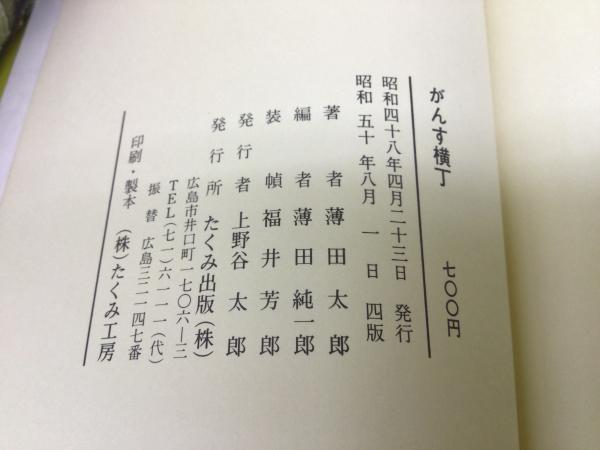 がんす横丁 七〇〇円
昭和四十八年四月二十三日 発行
昭和五十年八月一日 四版
著者 薄田太郎
編者 薄田純一郎
装幀 福井芳郎
発行者 上野谷太郎
発行所 たくみ出版(株)
広島市井口町一七〇六—三
TEL(七一)六一一一(代)
振替 広島三二一四七番
印刷・製本 (株)たくみ工房